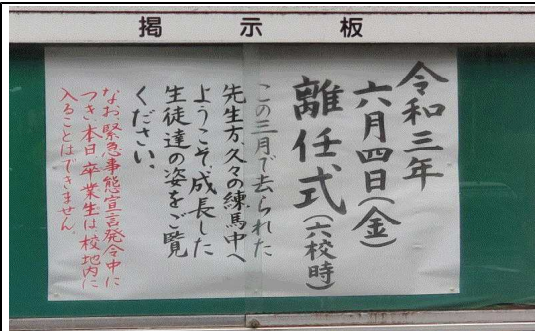 掲示板
令和三年
六月四日(金)
離任式(六校時)
この三月で去られた
先生方、久々の練馬中へ
ようこそ。成長した
生徒達の姿をご覧
ください。
なお、緊急事態宣言発令中に
つき、本日卒業生は校地内に
入ることはできません。